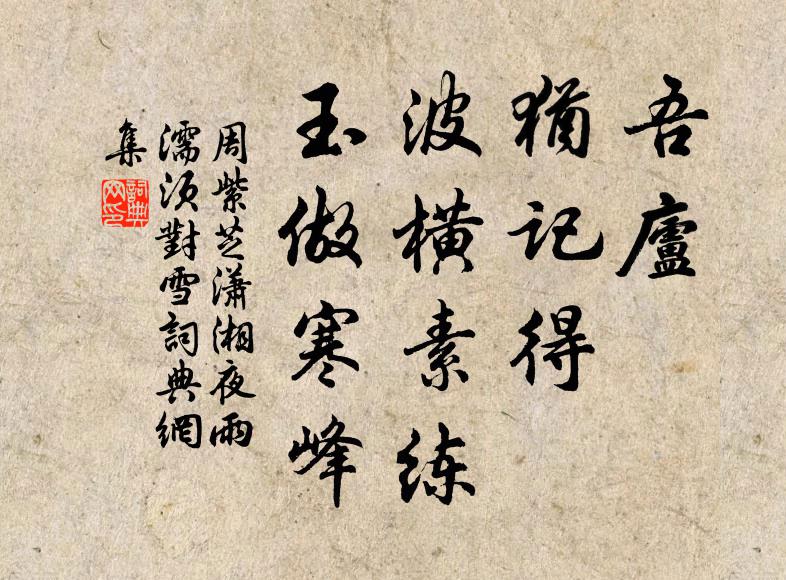 吾廬
猶記得
波橫素练
玉做寒峰
周紫芝瀟湘夜雨
濡須對雪詞典網
集
詞典
网印